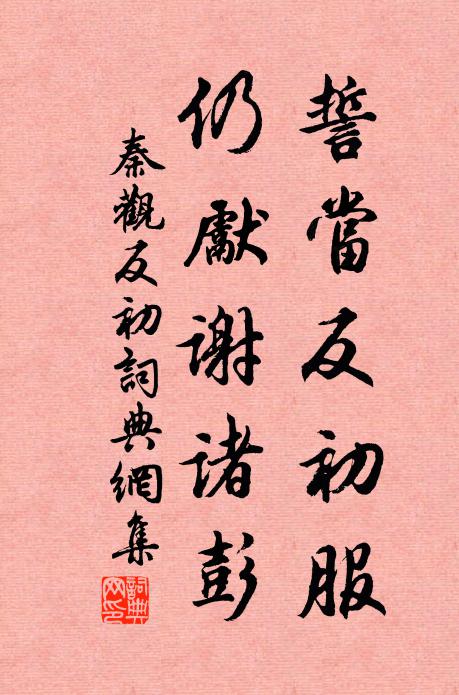 誓當反初服
仍獻謝諸彭
秦觀反初詞典網集
詞典网印